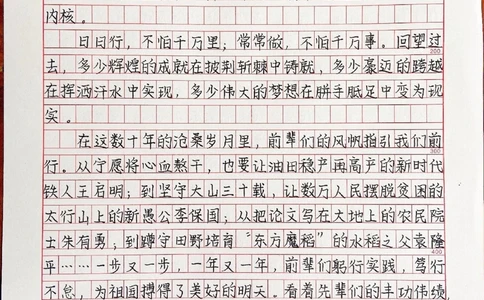 内核。
日日行，不怕千万里；常常做，不怕千万事。回望过
200
去，多少辉煌的成就在披荆斩棘中铸就，多少豪迈的跨越
在挥洒汗水中实现，多少伟大的梦想在胼手胝足中变为现
实。
在这数十年的沧桑岁月里，前辈们的风帆指引我们前
300
行。从宁愿将心血熬干，也要让油田稳产再高产的新时代
铁人王启明；到坚守大山三十载，让数万人民摆脱贫困的
太行山上的新愚公李保国；从把论文写在大地上的农民院
士朱有勇；到蹲守田野培育“东方魔稻”的水稻之父袁隆
400
平……一步又一步，一年又一年，前辈们躬行实践，笃行
不怠，为祖国搏得了美好的明天。看着先辈们的丰功伟绩